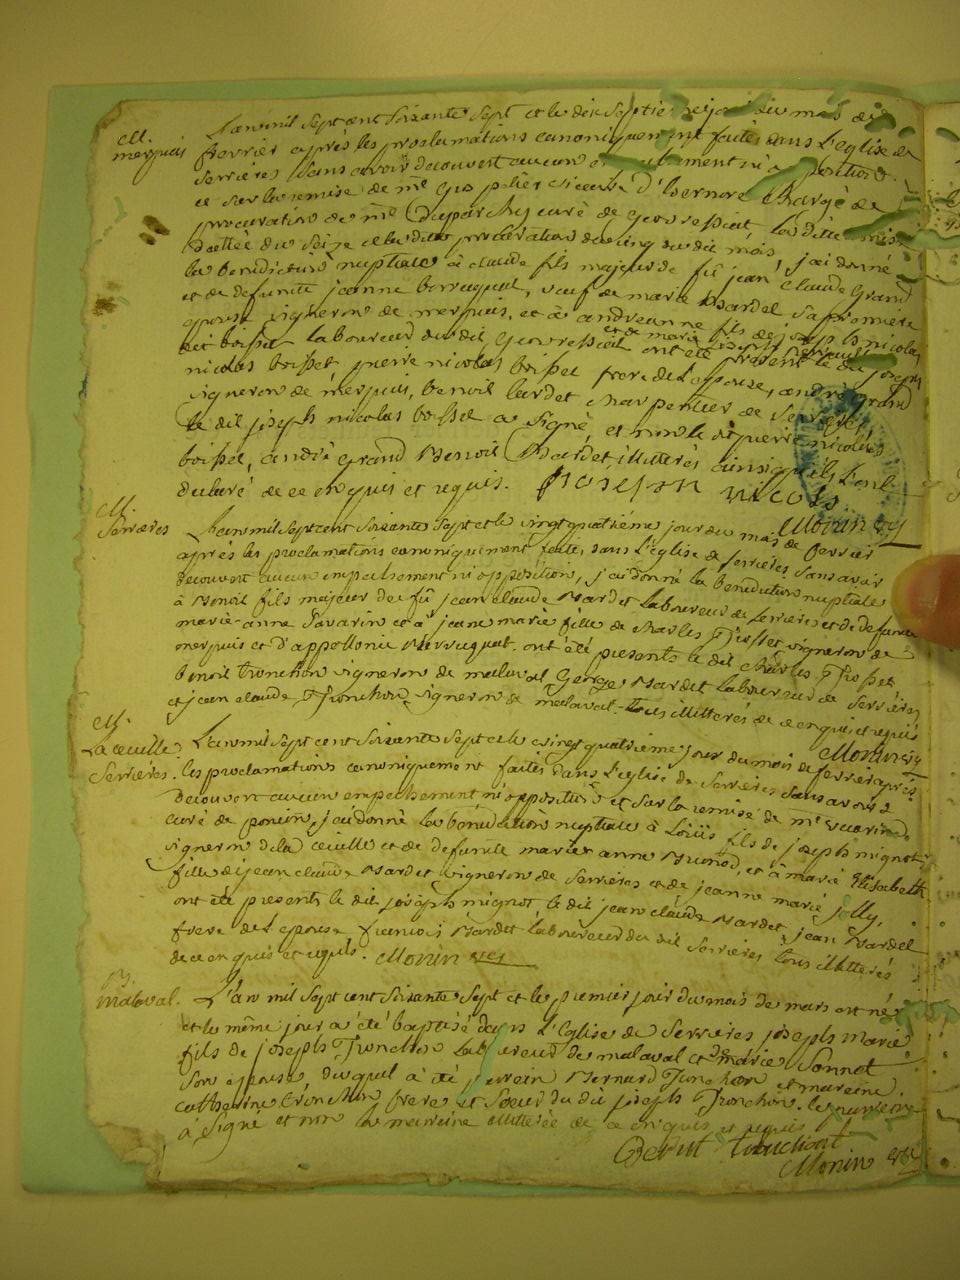 M.
merpuis
L'an mil sept cent soixante sept et le dix septieme jour du mois de
fevrier après les proclamations canoniquement faites dans l'eglise de
serrieres sans avoir decouvert aucun empechement ni opposition
et sur la remise de mre vicaire d'Isernore chargé de
procuration de mre curé de geovressiat la ditte remise
dattée du seize et la ditte procuration du cinq du dit mois, j'ai donné
la benediction nuptiale à claude fils majeur de fû jean claude Grand
et de defunte jeanne berruquat, veuf de marie Nardet sa premiere
epouse vigneron de merpuis, et à andreanne fille de joseph nicolas
et de marie
dit boisset laboureur du dit geovressiat ont été présent le dit joseph
nicolas boisset pierre nicolas boisset frere de l'epouse, andré grand
vigneron de merpuis, benoit lardet charpentier de
le dit joseph nicolas boisset a signé et non le dit pierre nicolas
boisset, andré grand Benoit illitterés ainsi qu'ils l'ont
declaré de ce enquis et requis. Joseph nicolas
Monin
M.
Serrieres
L'an mil sept cent soixante sept et le vingt quatrième jour du mois de fevrier
après les proclamations canoniquement faites dans l'église de serrieres sans avoir
decouvert aucun empechement ni opposition, j'ai donné la benediction nuptiale
à Benoit fils majeur de fû jean claude Nardet laboureur de serrieres et de defunte
marie anne Savarin et à jeane marie fille de charles vigneron de
merpuis et d'appollonie Berruquat. ont été presents le dit charles
benoit tronchon vigneron de malaval George Nardet laboureur de serrieres
et jean claude Tronchon vigneron de malaval tous illitterés de ce enquis et requis
Monin
M.
La ceuille
Serrieres.
L'an mil sept cent soixante sept et le vingt quatrieme jour du mois de fevrier après
les proclamations canoniquement faites dans l'eglise de serrieres sans avoir
decouvert aucun empechement ni opposition et sur la remise de mre
curé de poncin, j'ai donné la bénédiction nuptiale à Loüis fils de joseph mignot
vigneron de la ceuille et de defunte marie anne et à marie Elisabeth
fille de jean claude Nardet vigneron de serrieres et de jeanne marie jolly,
ont été presents le dit joseph mignot le dit jean claude Nardet jean Nardet
frere de l'epouse francois Nardet laboureur du dit serrieres tous illitterés
de ce enquis et requis. Monin
B.
malaval.
L'an mil sept cent soixante sept et le premier jour du mois de mars est né
et le même jour a été baptisé dans l'Eglise de Serrieres joseph marie
fils de joseph Tronchon laboureur de malaval et de marie Sonnet
son epouse, duquel a été parrein Bernard Tronchon et mareine
catherine tronchon frere et soeur du dit joseph Tronchon. le parrein
a signé et non la mareine illitterée de ce enquis et requis
tronchont
Monin